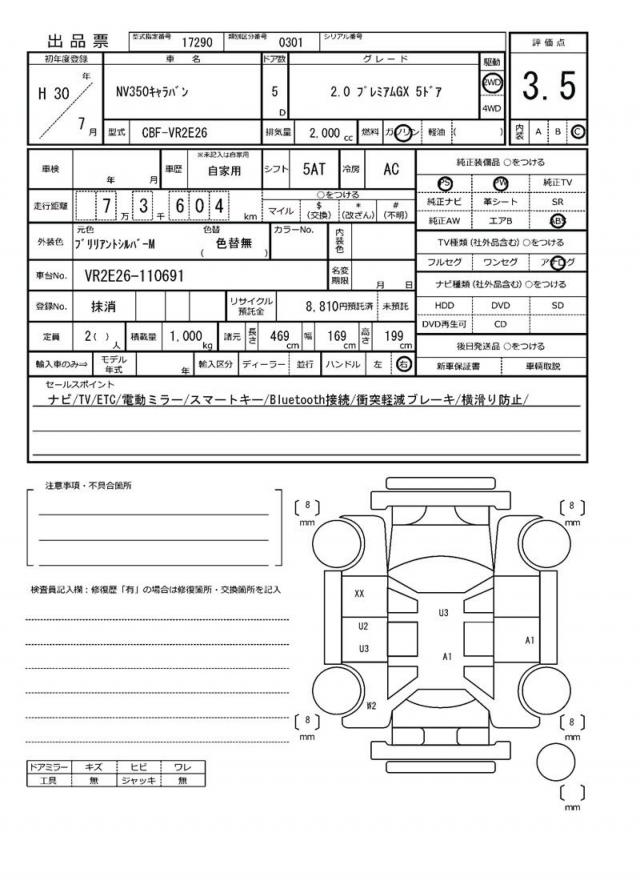 出品票 型式指定番号 17290 類別区分番号 0301 シリアル番号
初年度登録 車 名 ドア数 グレード 駆動 評価点
H 30 年 7 月 NV350キャラバン 5 D 2.0 プレミアムGX 5ドア 2WD 4WD 3.5
型式 CBF-VR2E26 排気量 2,000 cc 燃料 ガソリン 軽油 ( ) 内装 A B C
車検 年 月 車歴 ※未記入は自家用 自家用 シフト 5AT 冷房 AC
走行距離 7 万 3 千 6 0 4 km ○をつける マイル $ (交換) * (改ざん) # (不明)
外装色 元色 ブリリアントシルバーM 色替 ( 色替無 ) カラーNo. 内装色
車台No. VR2E26-110691 名変期限 月 日
登録No. 抹消 リサイクル預託金 8,810円預託済 未預託
定員 2( ) 人 積載量 1,000 kg 諸元 長さ 469 cm 幅 169 cm 高さ 199 cm
輸入車のみ⇒ モデル年式 年 輸入区分 ディーラー 並行 ハンドル 左 右
純正装備品 ○をつける
PS PW 純正TV
純正ナビ 革シート SR
純正AW エアB ABS
TV種類 (社外品含む) ○をつける
フルセグ ワンセグ アナログ
ナビ種類 (社外品含む) ○をつける
HDD DVD SD
DVD再生可 CD
後日発送品 ○をつける
新車保証書 車輌取説
セールスポイント
ナビ/TV/ETC/電動ミラー/スマートキー/Bluetooth接続/衝突軽減ブレーキ/横滑り防止/
注意事項・不具合箇所
検査員記入欄：修復歴「有」の場合は修復箇所・交換箇所を記入
ドアミラー キズ ヒビ ワレ
工具 無 ジャッキ 無
8 mm
8 mm
XX
U3
U2
U3
A1
A1
W2
8 mm
8 mm
mm